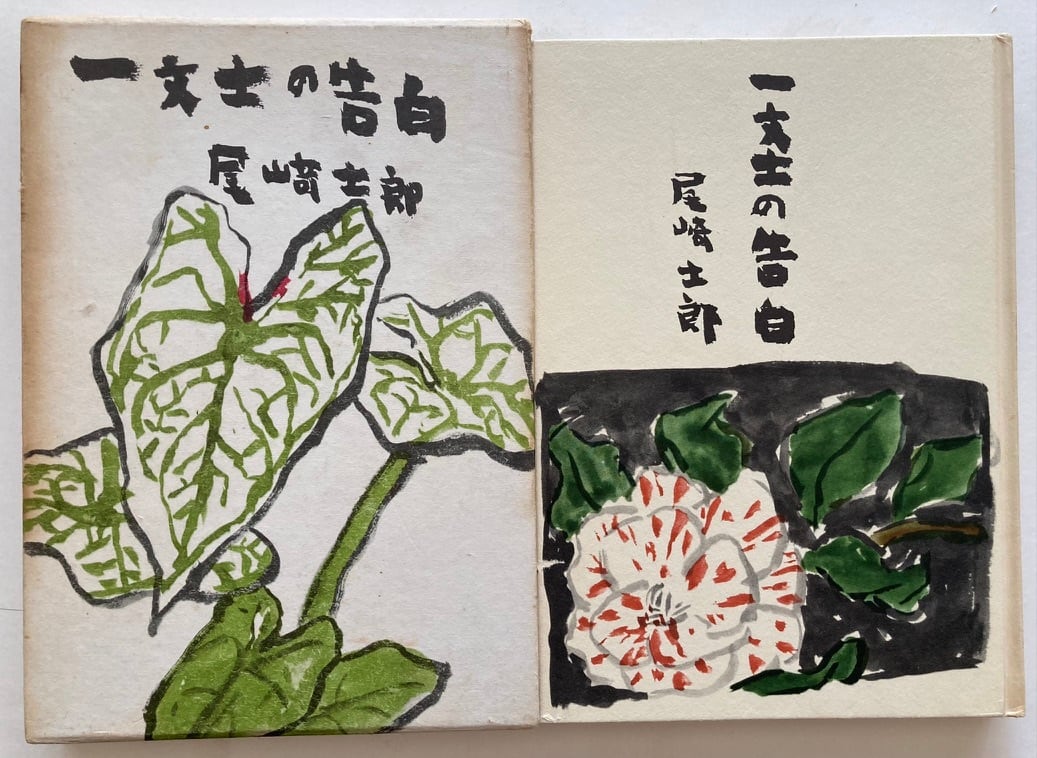 一文士の告白
尾﨑士郎
一文士の告白
尾﨑士郎